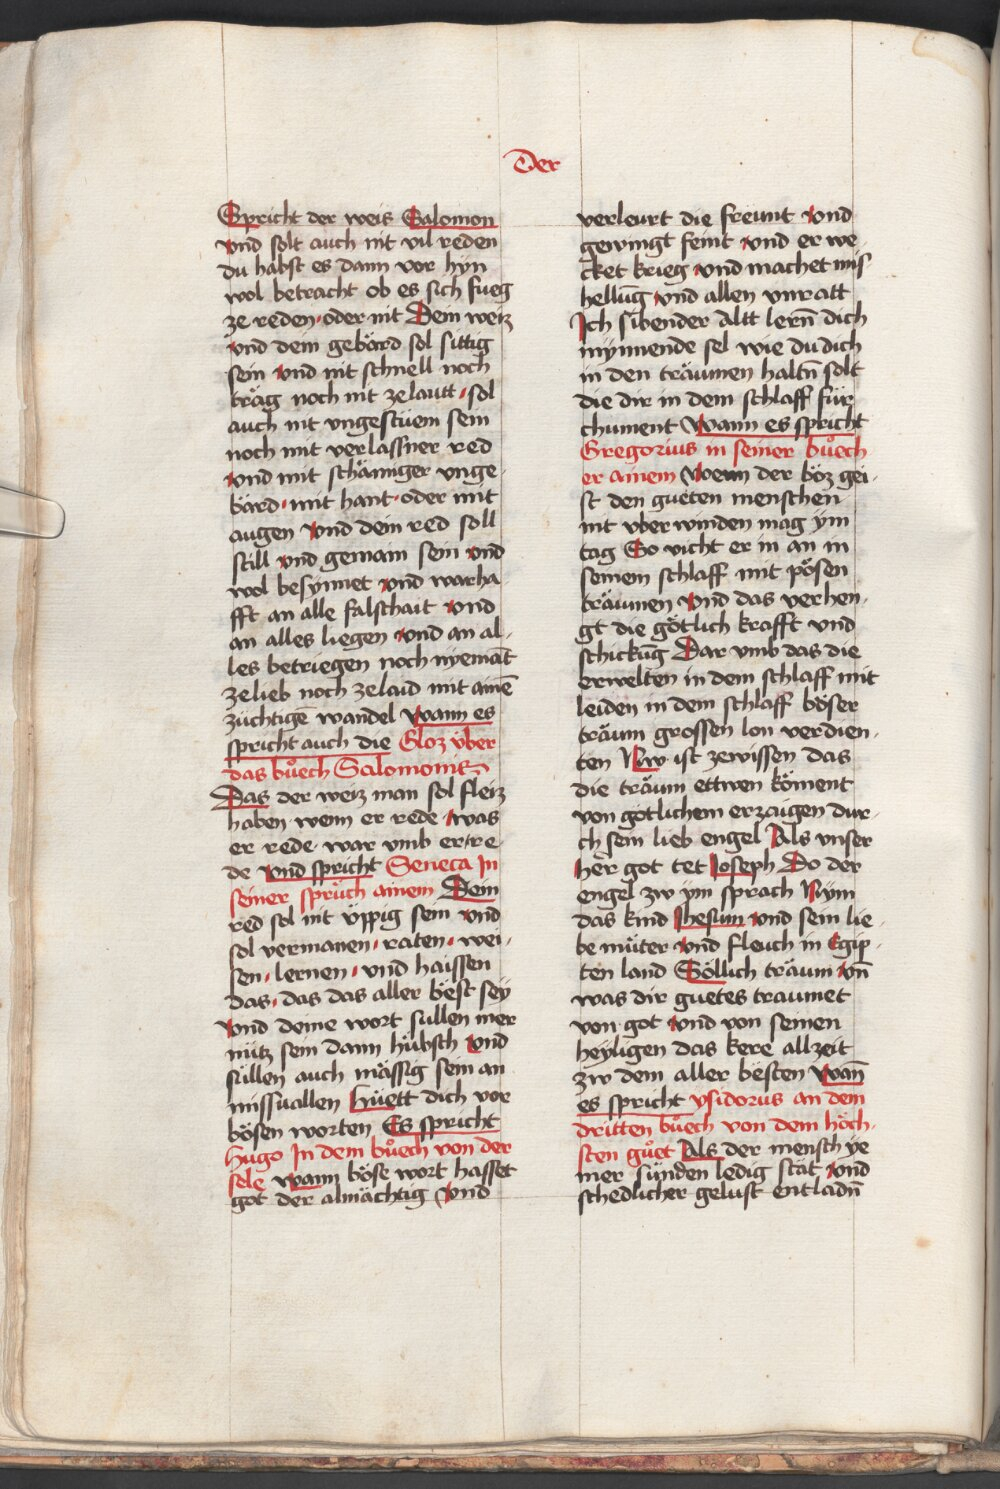 Der
Spricht der weis Salomon
vnd solt auch nit vil reden
du habst es dann vor hyn
wol betracht ob es sich fueg
ze reden oder nit Dein weiz
vnd dem gebärd sol sittig
sein vnd nit schnell noch
träg noch nit ze lautt sol
auch nit vngestüem sein
noch mit verlassner red
vnd mit schämiger vnge
bärd mit hant oder mit
augen vnd dein red soll
still vnd gemain sein vnd
wol besynnet vnd warha
fft an alle falschait vnd
an alles liegen vnd an al
les betriegen noch nyemāt
ze lieb noch ze laid mit ainē
züchtigē wandel wann es
spricht auch die Gloz vber
das bůech Salomonis
Das der weiz man sol fleiz
haben wenn er rede was
er rede war vmb er re
de vnd spricht Seneca In
seiner sprüch ainem Dein
red sol nit üppig sein vnd
sol vermanen raten wei
sen lernen vnd haissen
das das das aller best sey
vnd deine wort sullen mer
nütz sein dann hübsch vnd
süllen auch mässig sein an
missuallen hüett dich vor
bösen worten Es spricht
hugo In dem bůech von der
sele wann böse wort hasset
got der almächtig vnd
verleurt die freunt vnd
gewingt feint vnd er we
cket krieg vnd machet mis
hellūg vnd allen vnratt
Ich sibender altt lern̄ dich
mynnende sel wie du dich
in den träumen haltn̄ solt
die dir in dem schlaff für
chument wann es spricht
Gregorius in seiner bůech
er ainem Wenn der böz gei
st den gueten menschen
nit vber winden mag ym
tag So vicht er in an in
seinem schlaff mit pösen
träumen vnd das verhen
gt die götlich krafft vnd
schickūg Dar vmb das die
erwelten in dem schlaff mit
leiden in dem schlaff böser
träum grossen lon verdien
ten Nw ist ze wissen das
die träum ettwen köment
von götlichem erzaigen dur
ch sein lieb engel Als vnser
her got tet Joseph Do der
engel zw ym sprach Nym
das kind Jhesum vnd sein lie
be müter vnd fleuch in Egip
ten land Söllich träum vn̄
was dir guetes traumet
von got vnd von seinen
heyligen das kere allzeit
zw dem aller besten wan̄
es spricht ysidorus an dem
dritten bůech von dem höch
sten gůet Als der mensch ye
mer sünden ledig stät vnd
schedlicher gelust entladn̄